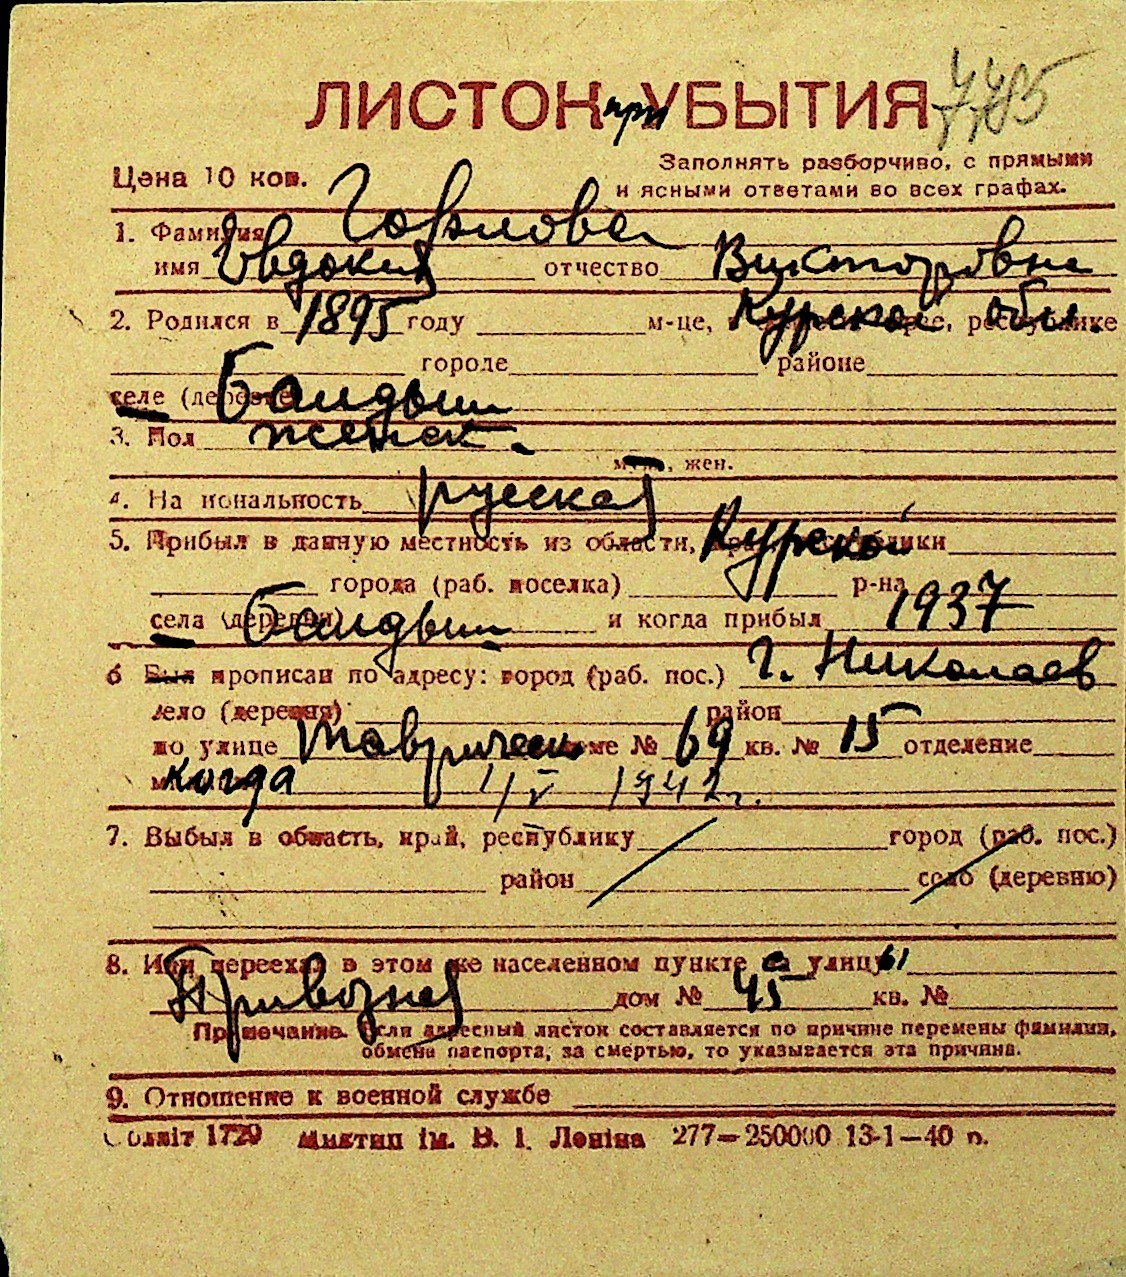 ЛИСТОК при УБЫТИЯ
Цена 10 коп.
Заполнять разборчиво, с прямыми
и ясными ответами во всех графах.
1. Фамилия Горлова
имя Евдокия отчество Викторовна
2. Родился в 1895 году м-це, в Курской обл. республике
городе районе
селе (деревне) Банды
3. Пол женск.
муж., жен.
4. Национальность русская
5. Прибыл в данную местность из области, Курской
города (раб. поселка) р-на
села (деревни) и когда прибыл 1937
6 Был прописан по адресу: город (раб. пос.) г. Николаев
село (деревня) район
по улице Таврическ доме № 69 кв. № 15 отделение
когда 1/V 1942 г.
7. Выбыл в область, край, республику город (раб. пос.)
район село (деревню)
8. Или переехал в этом же населенном пункте с улицы
Привозная дом № 45 кв. №
Примечание. Если адресный листок составляется по причине перемены фамилии,
обмена паспорта, за смертью, то указывается эта причина.
9. Отношение к военной службе
Облліт 1729 Миктип ім. В. І. Леніна 277—250000 13-1—40 р.